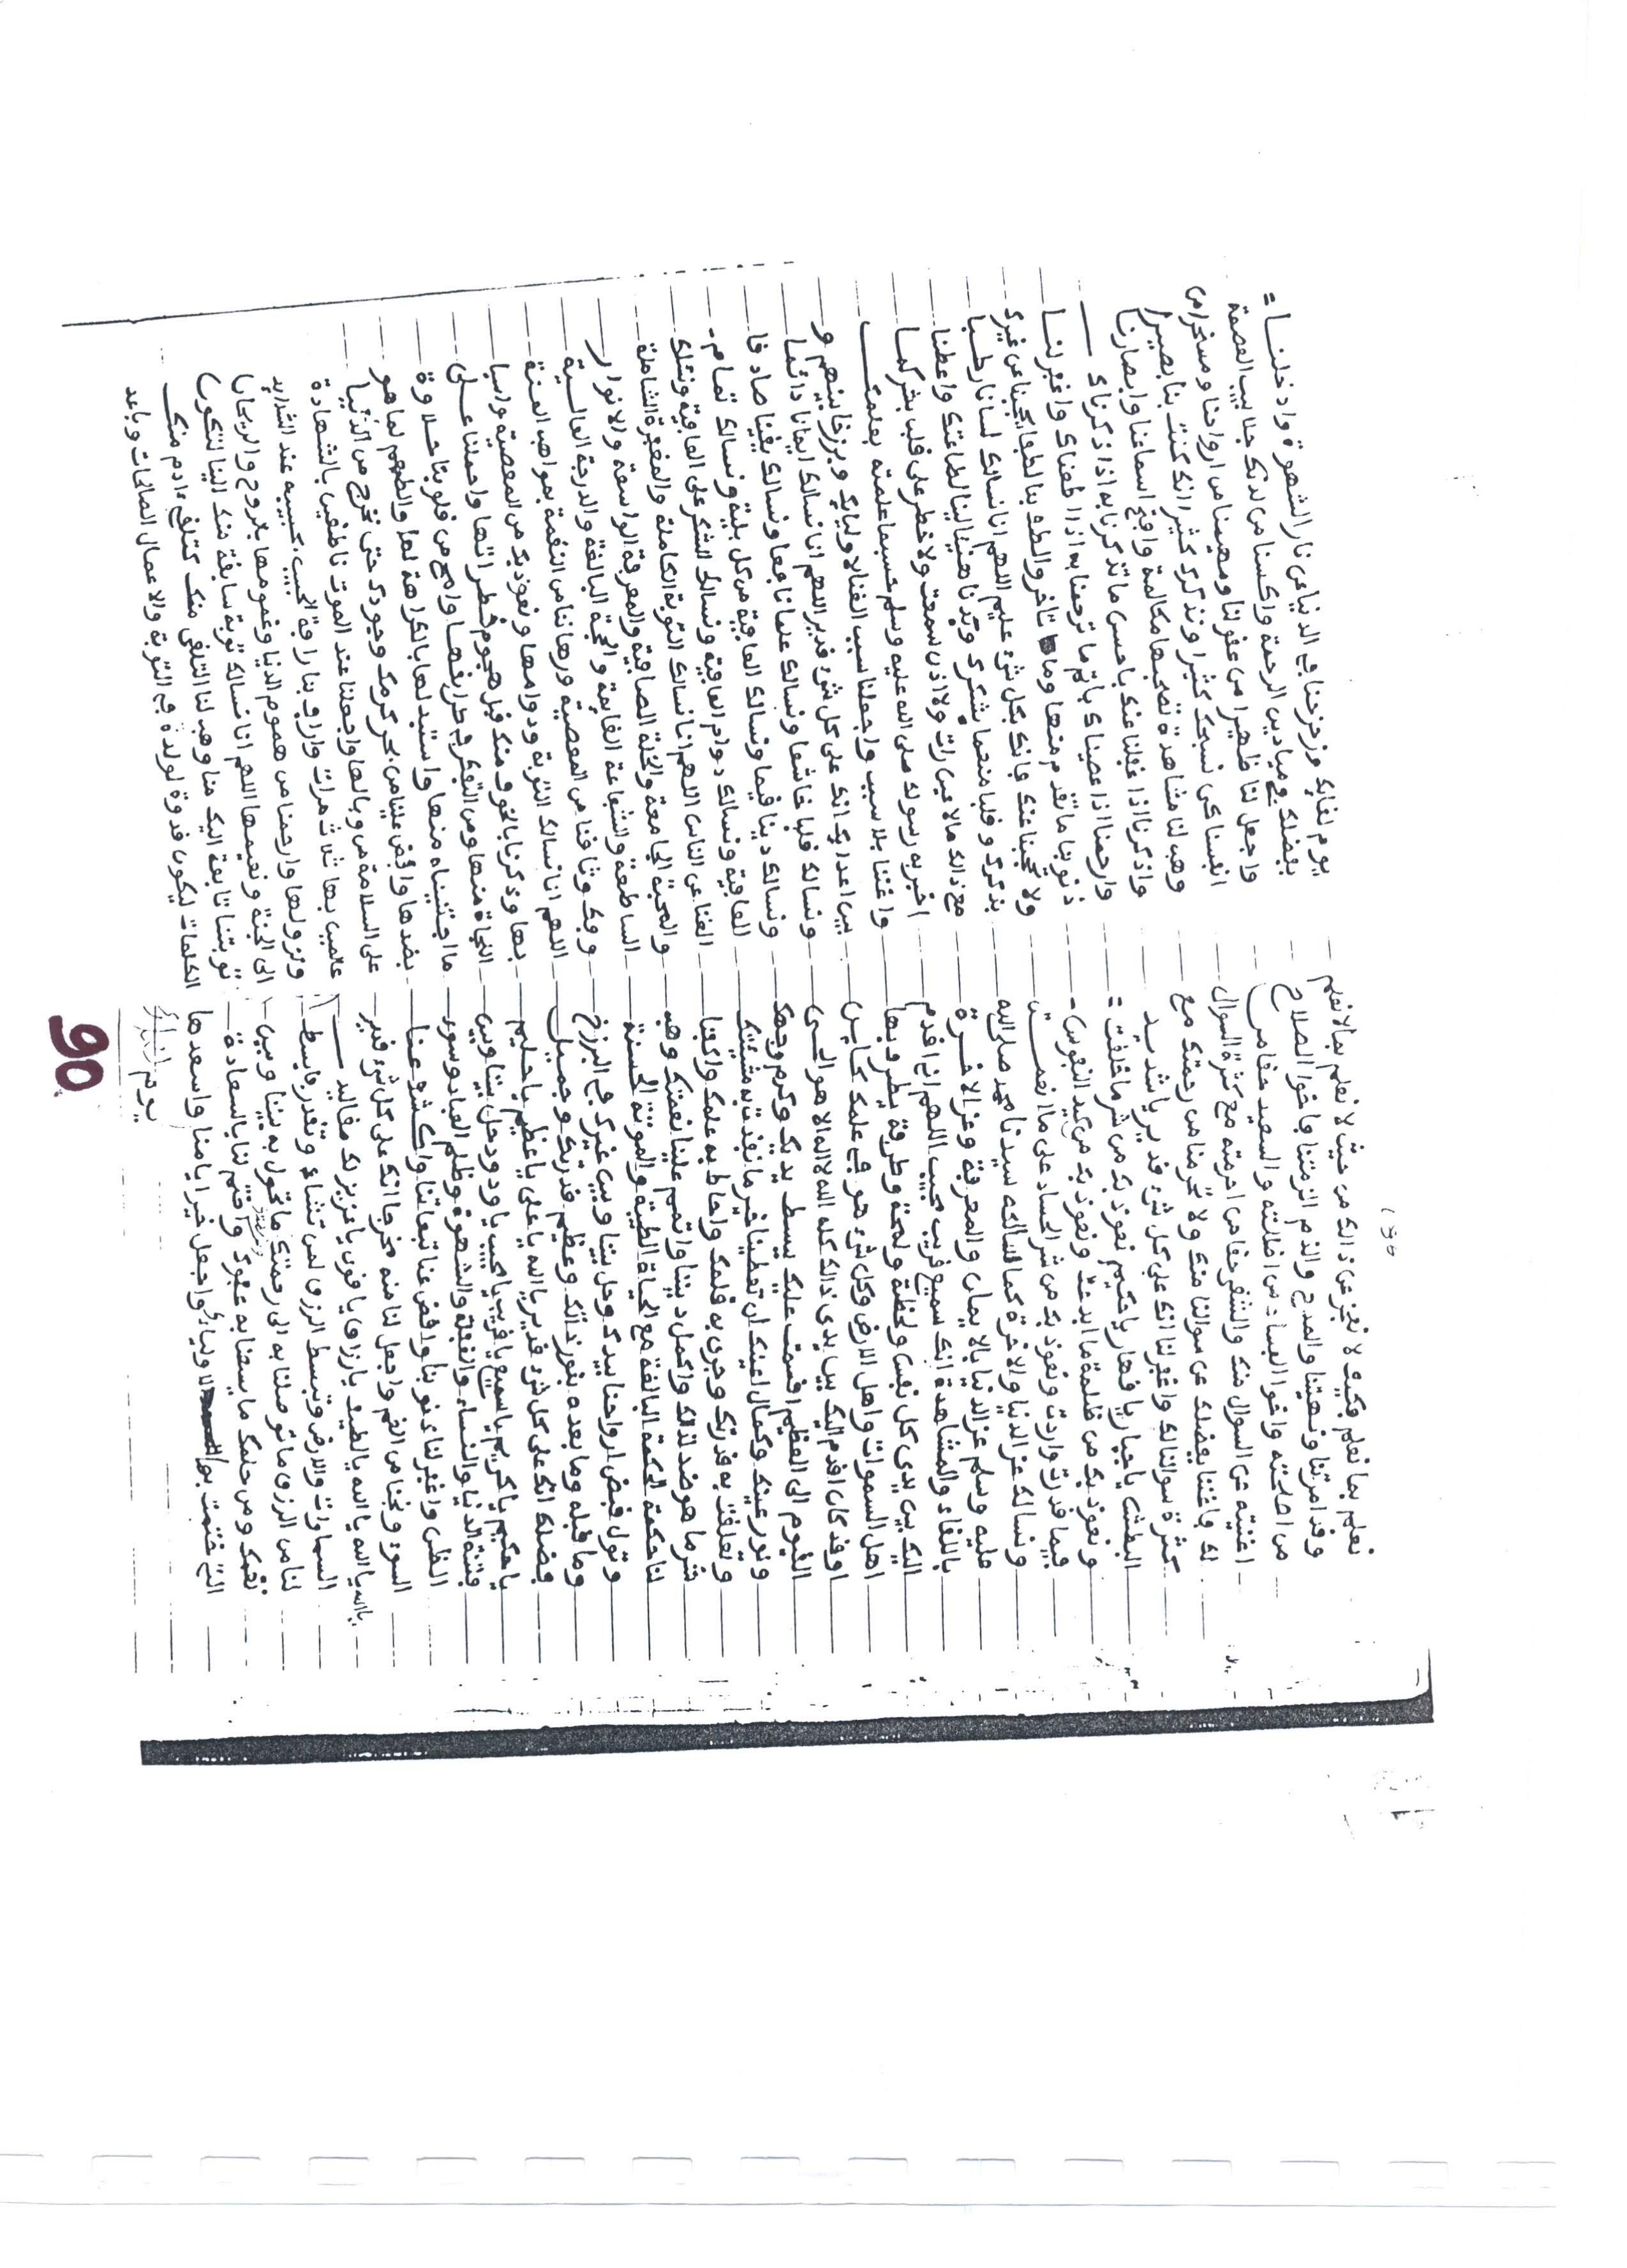 نعلم بما نعلم فكيف لا نعجز عن ذالك من حيث لا نعلم بما لا نعلم
وقد امرتنا ونهيتنا والمدح والذم الزمتنا فاخوا الصلاح
من اصلحته واخوا الفساد من اضللته والسعيد حقا من
اغنيته عن السوال منك والشقي حقا من احرمته مع كثرة السوال
لك فاغننا بفضلك عن سوالنا منك ولا تحرمنا من رحمتك مع
كثرة سوالنا لك واغفر لنا انك على كل شيء قدير يا شديد
البطش يا جبار يا قهار يا حكيم نعوذ بك من شر ما خلقت =
ونعوذ بك من ظلمة ما ابدعت ونعوذ بك من كيد النفوس -
فيما قدرت واردت ونعوذ بك من شر الحساد على ما انعمت
ونسالك عز الدنيا والاخرة كما سالكه سيدنا محمد صلى الله
عليه وسلم عز الدنيا بالايمان والمعرفة وعز الاخرة
باللقاء والمشاهدة انك سميع قريب مجيب اللهم اني اقدم
اليك بين يدي كل نفس ولمحة وطرفة يطرف بها
اهل السموات واهل الارض وكل شيء هو في علمك كاين
او قد كان اقدم اليك بين يدي ذالك كله الله لا اله الا هو الحي
القيوم الى العظيم اقسمت عليك ببسط يديك وكرم وجهك
ونور عينك وكمال اعينك ان تعطينا خير ما نفذت به مشيئتك
وتعلقت به قدرتك وجرى به قلمك واحاط به علمك واكفنا
شر ما هو ضد لذلك واكمل ديننا واتمم علينا نعمتك وهب
لنا حكمة الحكمة البالغة مع الحياة الطيبة والموتة الحسنة
وتول قبض ارواحنا بيدك وحل بيننا وبين غيرك في البرزخ
وما قبله وما بعده بنور ذاتك وعظيم قدرتك وجميل
فضلك انك على كل شيء قدير يا الله يا علي يا عظيم يا حليم
يا حكيم يا كريم يا سميع يا قريب يا مجيب يا ودود حل بيننا وبين
فتنة الدنيا والنساء والغفلة والشهوة وظلم العباد وسوء
الخلق واغفر لنا ذنوبنا واقض عنا تبعاتنا واكشف عنا
السوء ونجنا من الغم واجعل لنا منه مخرجا انك على كل شيء قدير
يا الله يا الله يا الله يا لطيف يا رزاق يا قوي يا عزيز لك مقاليد
السماوات والارض تبسط الرزق لمن تشاء وتقدر فابسط
لنا من الرزق ما توصلنا به الى رحمتك ومن رحمتك ما تحول به بيننا وبين
نقمك ومن حلمك ما يسعنا به عفوك واختم لنا بالسعادة
التي ختمت بها لاوليائك واجعل خير ايامنا واسعدها
يوم لقائك
يوم لقائك وزحزحنا في الدنيا عن نار الشهوة وادخلنا =
بفضلك في ميادين الرحمة واكسنا من لدنك جلابيب العصمة
واجعل لنا ظهيرا من عقولنا ومهيمنا من ارواحنا ومسخرا من
انفسنا كي نسبحك كثيرا ونذكرك كثيرا انك كنت بنا بصيرا
وهب لنا مشاهدة تصحبها مكالمة وافتح اسماعنا وابصارنا
واذكرنا اذا غفلنا عنك باحسن ما تذكرنا به اذا ذكرناك
وارحمنا اذا عصيناك باتم ما ترحمنا به اذا اطعناك واغفر لنا
ذنوبنا ما تقدم منها وما تاخر والطف بنا لطفا يحجبنا عن غيرك
ولا يحجبنا عنك فانك بكل شيء عليم اللهم انا نسالك لسانا رطبا
بذكرك وقلبا منعما بشكرك وبدنا هينا لينا لطاعتك واعطنا
مع ذالك ما لا عين رات ولا اذن سمعت ولا خطر على قلب بشر كما
اخبر به رسولك صلى الله عليه وسلم حسبما علمته بعلمك
واغننا بلا سبب واجعلنا سبب الغنا لاوليائك وبرزخا بينهم و
بين اعدائك انك على كل شيء قدير اللهم انا نسالك ايمانا دائما
ونسالك قلبا خاشعا ونسالك علما نافعا ونسالك يقينا صادقا
ونسالك دينا قيما ونسالك العافية من كل بلية ونسالك تمام -
العافية ونسالك دوام العافية ونسالك الشكر على العافية ونسئلك
الغنا عن الناس اللهم انا نسالك التوبة الكاملة والمغفرة الشاملة
والمحبة الجامعة والخلة الصافية والمعرفة الواسعة والانوار
الساطعة والشفاعة القايمة والحجة البالغة والدرجة العالية
وفك وثاقنا من المعصية ورهاننا من النقمة بمواهب المنة
اللهم انا نسالك التوبة ودوامها ونعوذ بك من المعصية واسبا
بها وذكرنا بالخوف منك قبل هجوم خطراتها واحملنا على
النجاة منها ومن التفكر في طرائقها وامح من قلوبنا حلاوة
ما اجتنيناه منها واستبدلها بالكراهة لها والطعم لما هو
بضدها وافض علينا من بحر كرمك وجودك حتى نخرج من الدنيا
على السلامة من وبالها واجعلنا عند الموت ناطقين بالشهادة
عالمين بها ثلاث مرات واراف بنا رافة الحبيب بحبيبه عند الشدايد
ونزولها وارحنا من هموم الدنيا وغمومها بالروح والريحان
الى الجنة ونعيمها اللهم انا نسالك توبة سابقة منك الينا لتكون
توبتنا تابعة اليك منا وهب لنا التلقي منك كتلقي ءادم منك
الكلمات ليكون قدوة لولده في التوبة والاعمال الصالحات وباعد
90